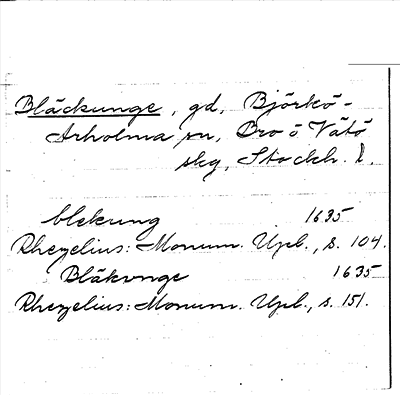 Bläckunge, gd, Björkö-
Arholma sn, Bro o Vätö
skg, Stockh. l.
blekung 1635
Rhezelius: Monum. Upl., s. 104.
Bläkvnge 1635
Rhezelius: Monum. Upl., s. 151.